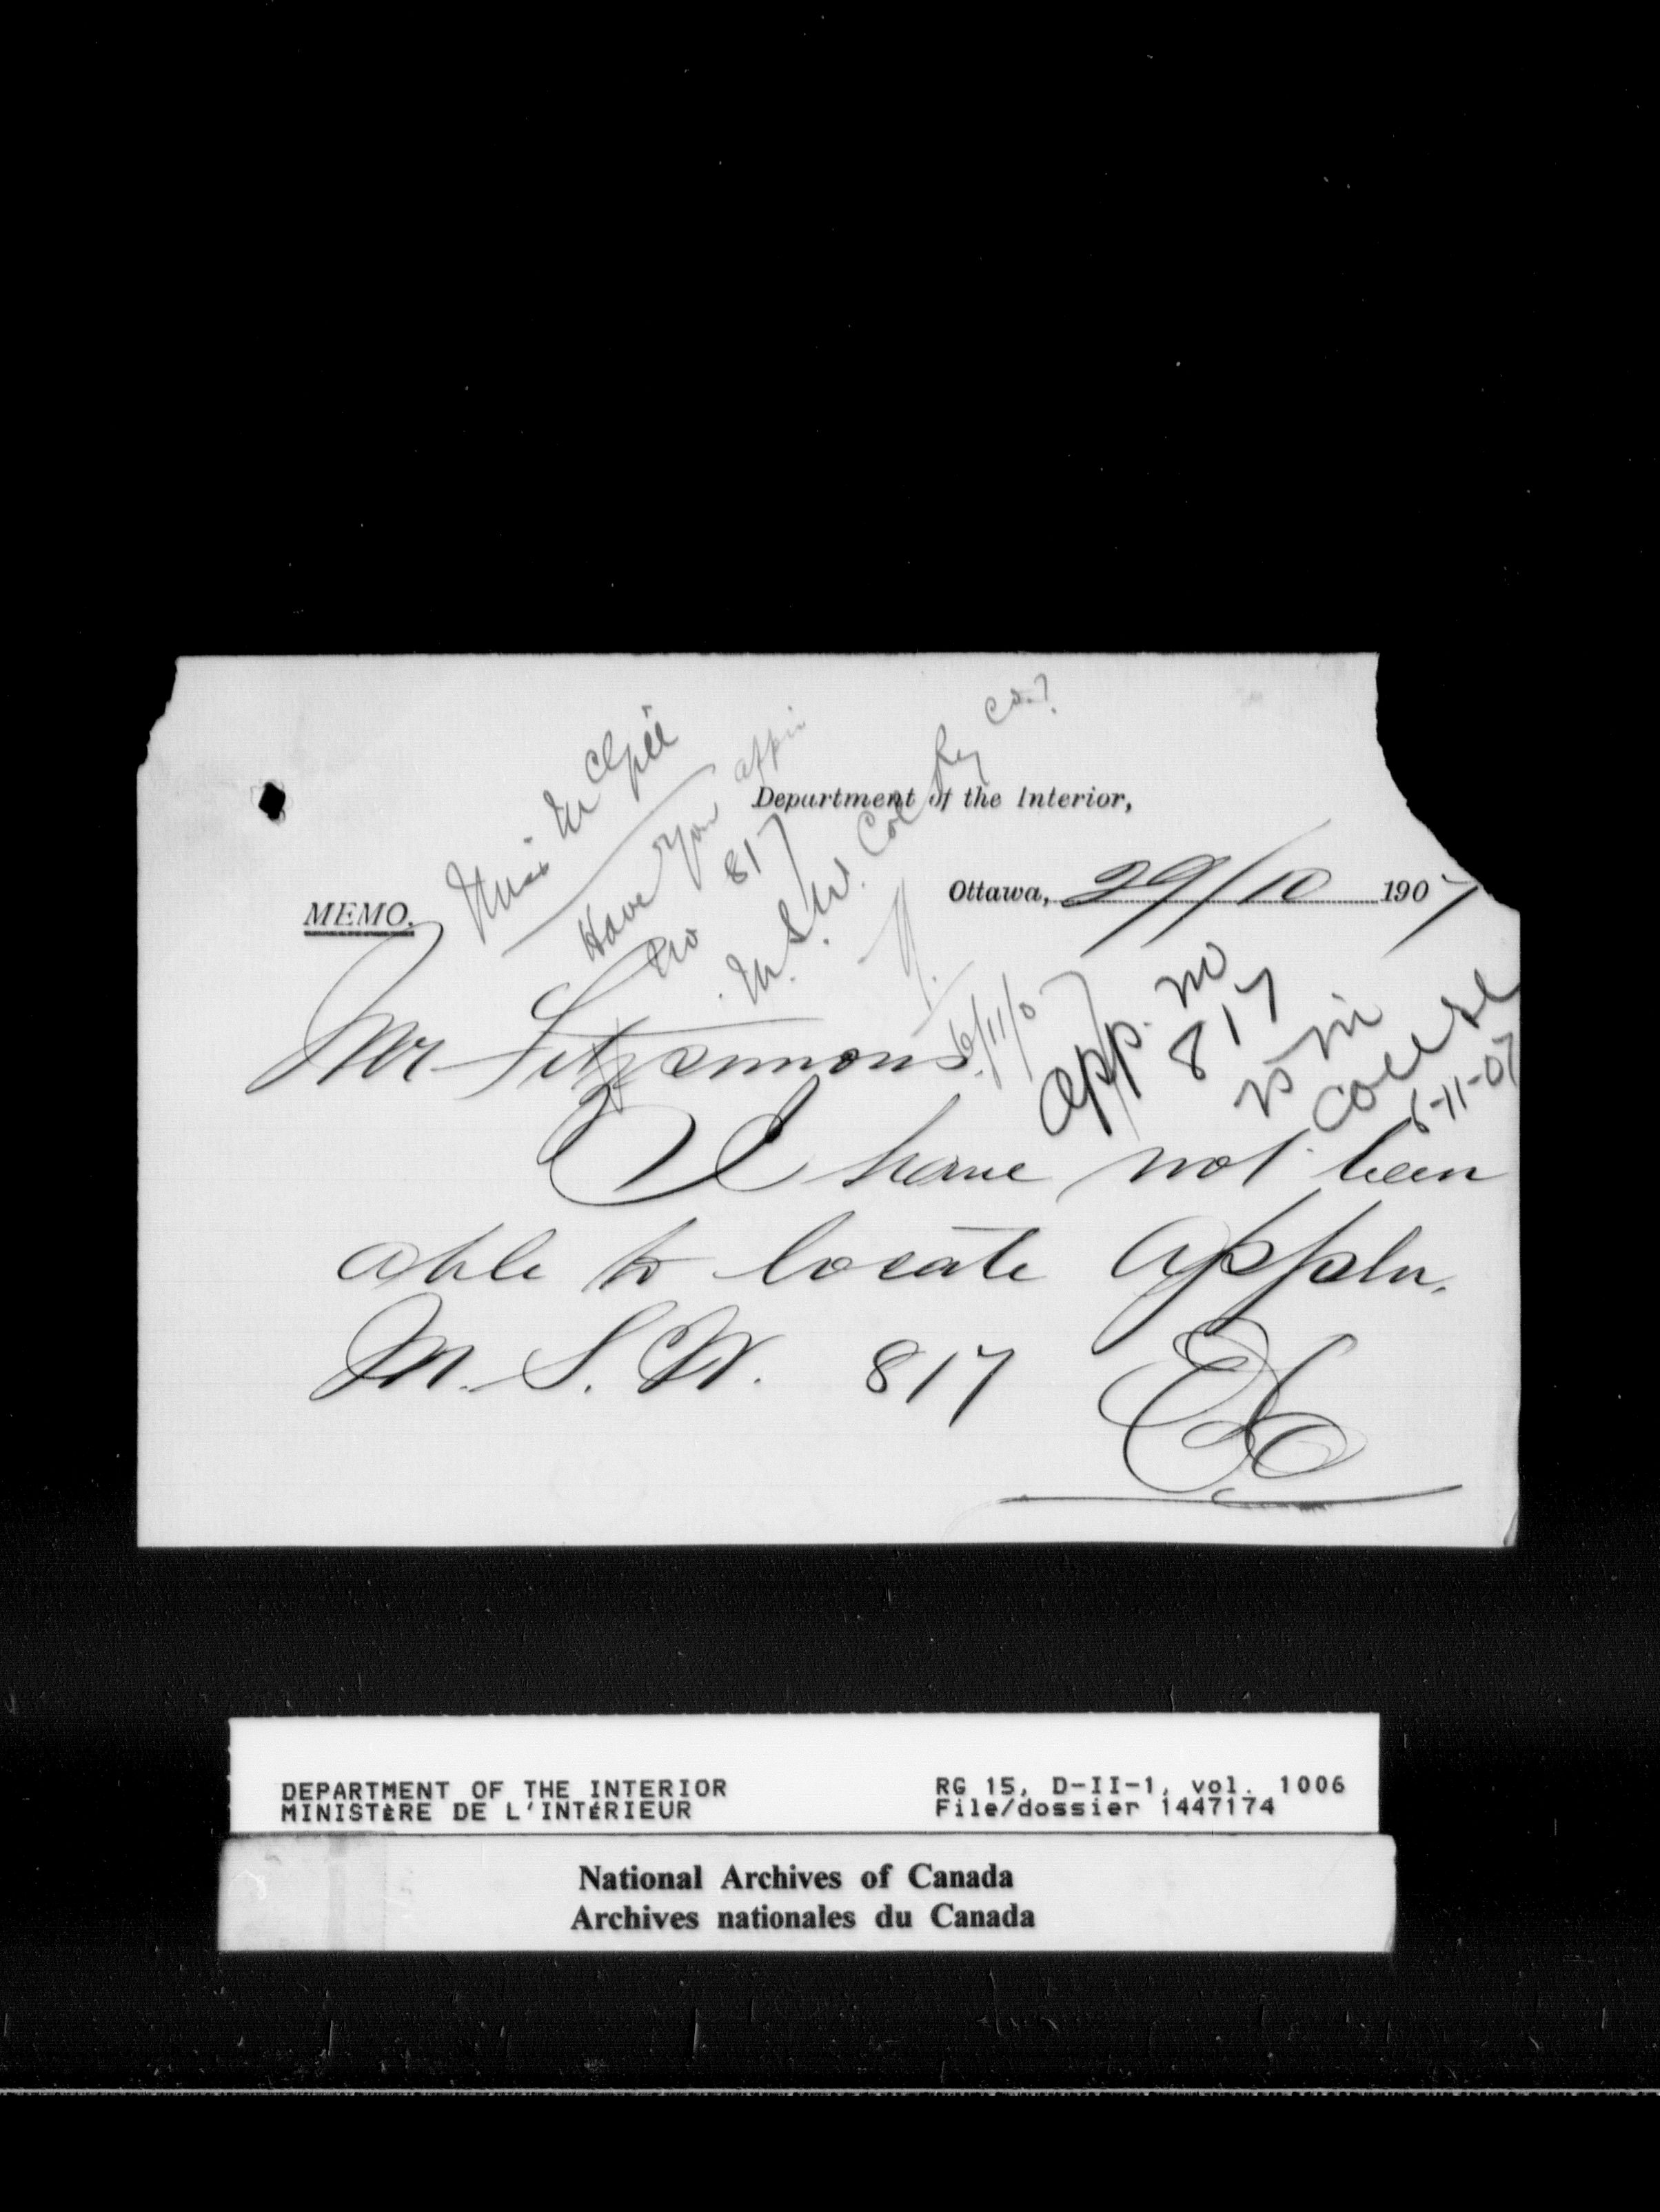 Miss McGill
Have you appn
No 817
M. S. W. Col Ry Co.?
6/11/07
Department of the Interior,
Ottawa, 29/10 1907
MEMO.
App. no
817
is in
course
6-11-07
Mr Fitzsimmons.
I have not been
able to locate Appln.
M. S. W. 817
DEPARTMENT OF THE INTERIOR
MINISTÈRE DE L'INTÉRIEUR
RG 15, D-II-1, vol. 1006
File/dossier 1447174
National Archives of Canada
Archives nationales du Canada